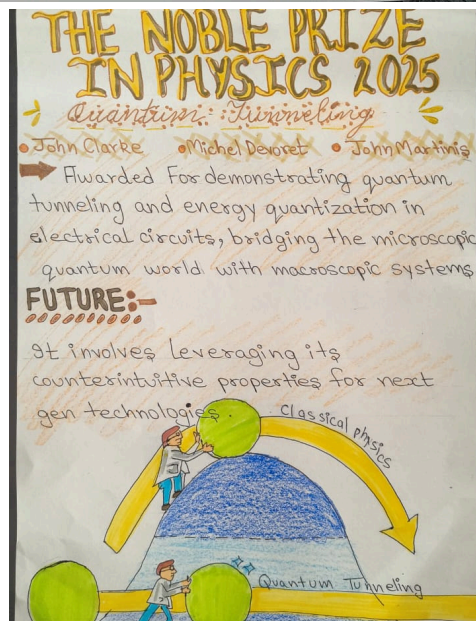 THE NOBLE PRIZE
IN PHYSICS 2025
Quantum Tunneling
• John Clarke • Michel Devoret • John Martinis
Awarded For demonstrating quantum
tunneling and energy quantization in
electrical circuits, bridging the microscopic
quantum world with macroscopic systems
FUTURE:-
It involves leveraging its
counterintuitive properties for next
gen technologies.
Classical physics
Quantum Tunneling